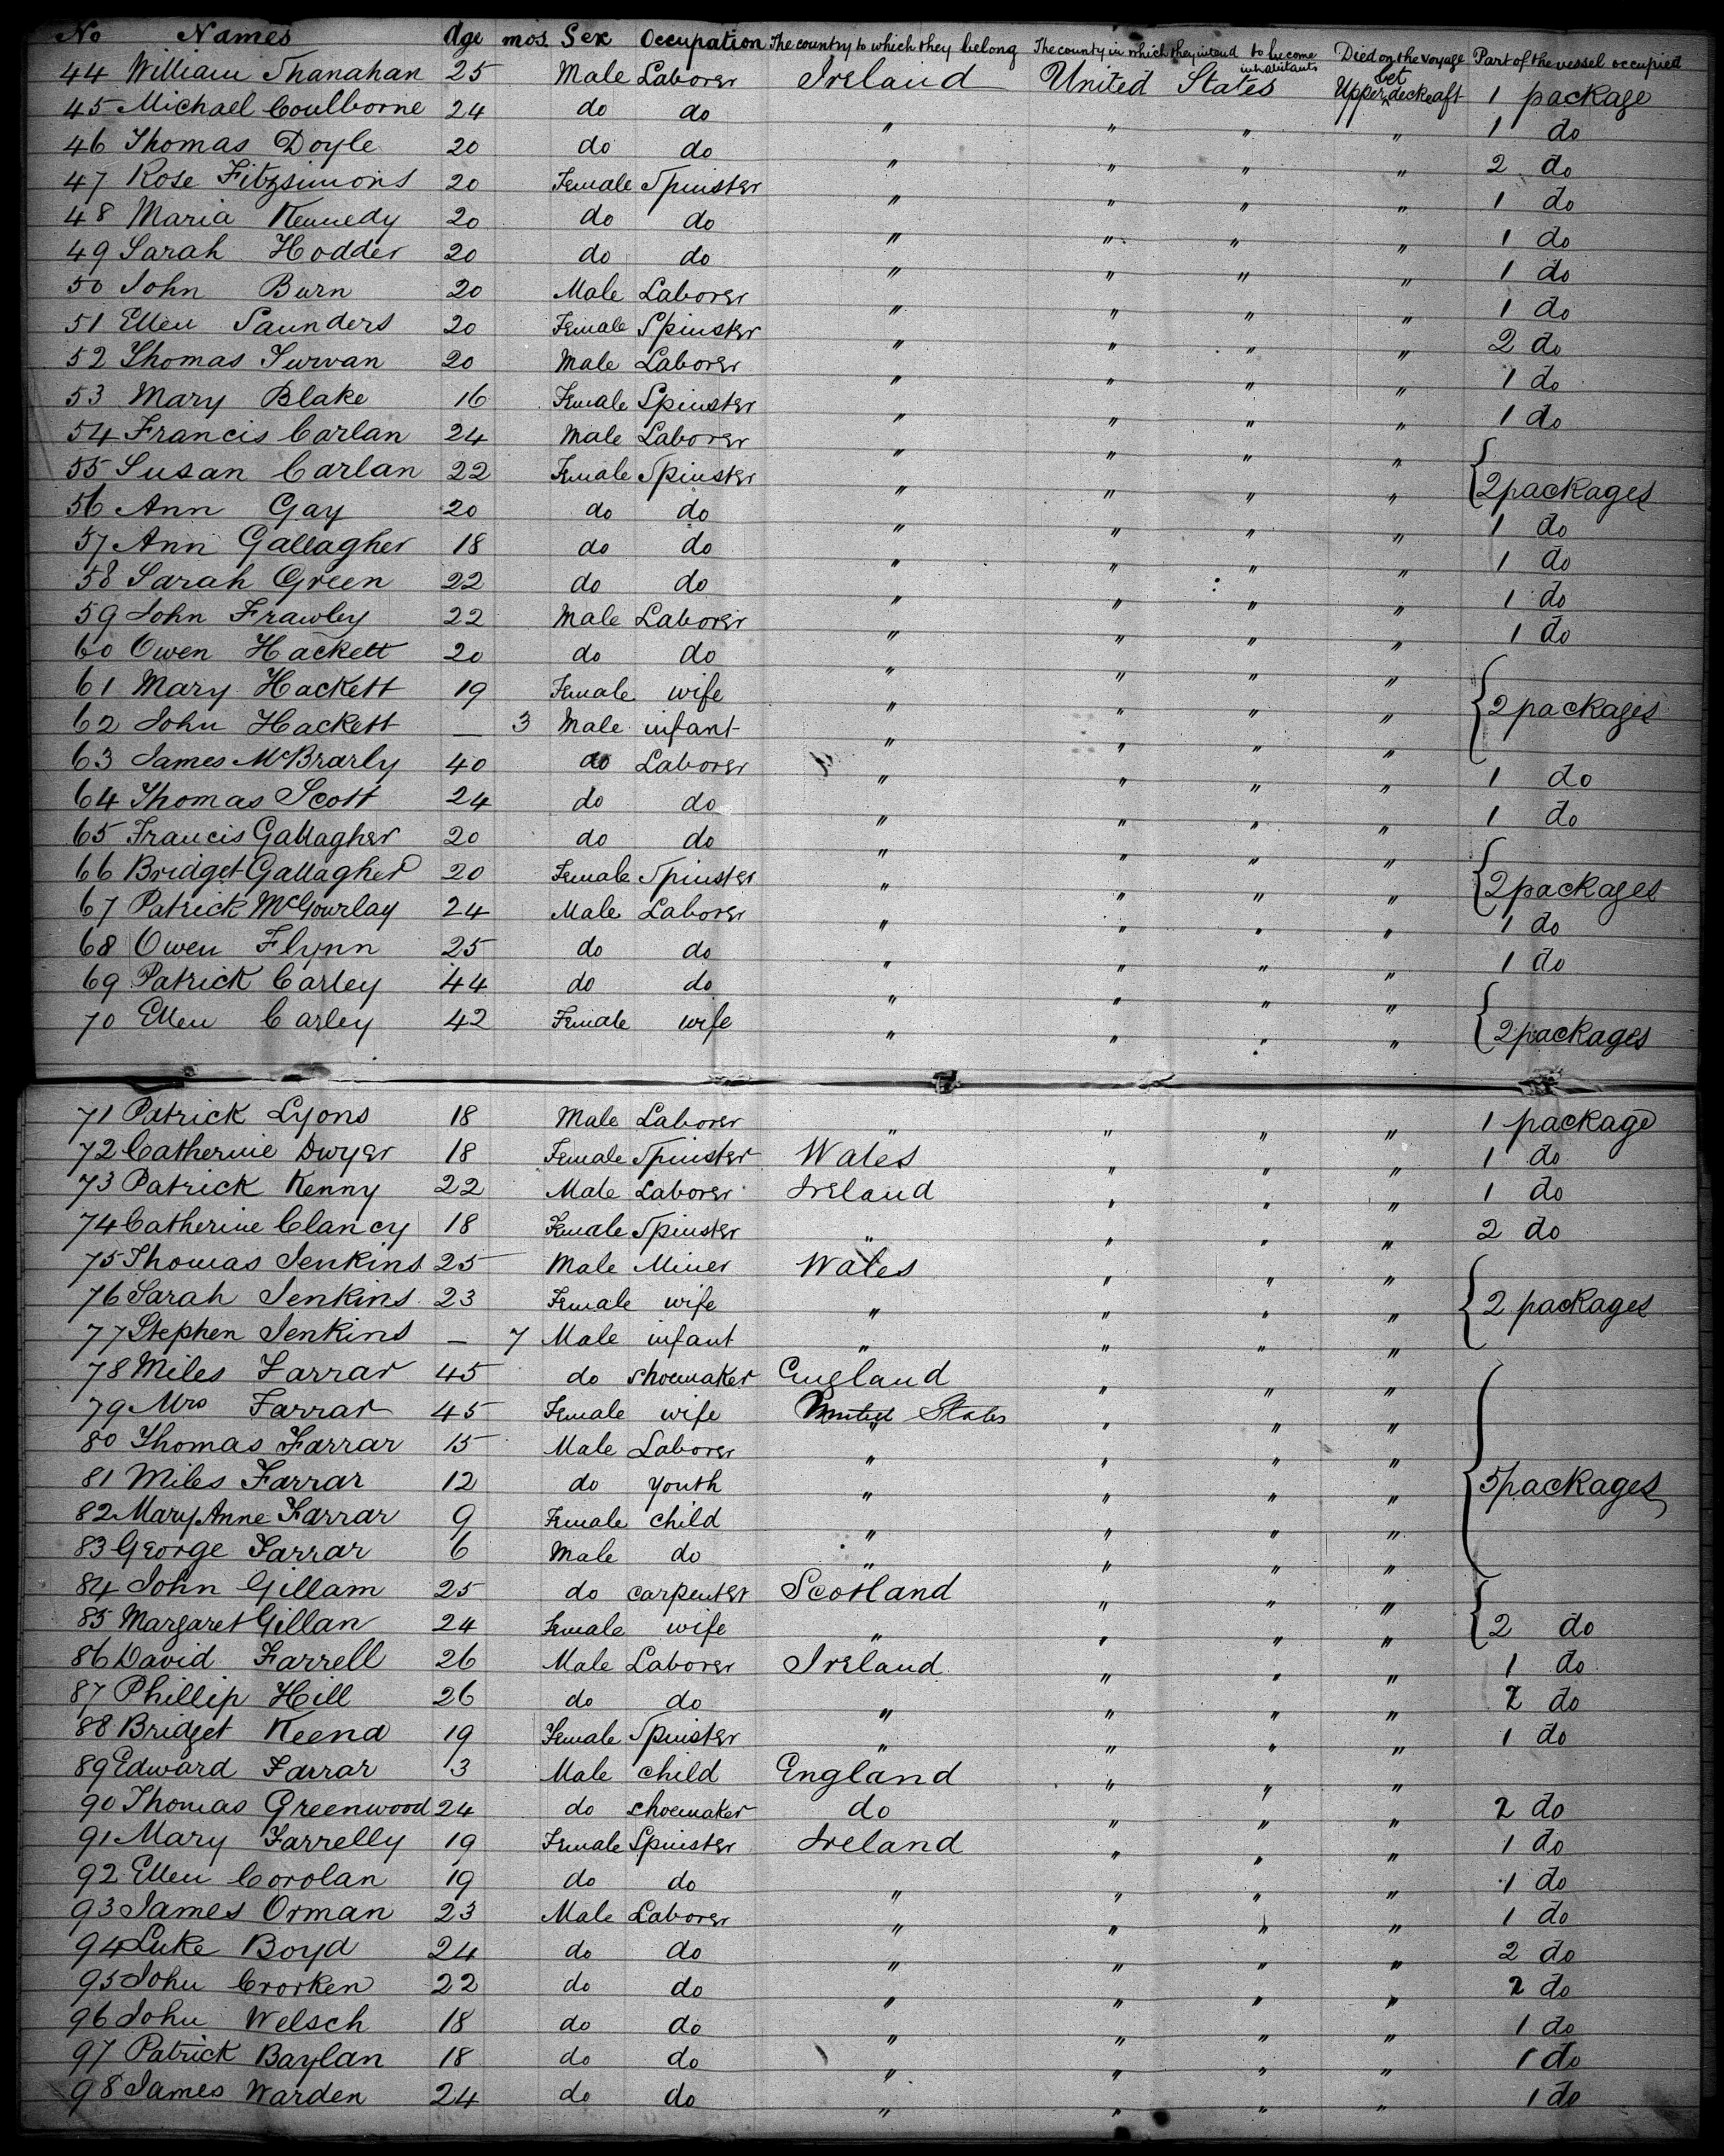 No Names Age mos. Sex Occupation The country to which they belong The county in which they intend to become inhabitants Died on the voyage Part of the vessel occupied
44 William Shanahan 25 Male Laborer Ireland United States Upper bet decke aft 1 package
45 Michael Coulborne 24 do do " " " " 1 do
46 Thomas Doyle 20 do do " " " " 2 do
47 Rose Fitzsimons 20 Female Spinster " " " " 1 do
48 Maria Kennedy 20 do do " " " " 1 do
49 Sarah Hodder 20 do do " " " " 1 do
50 John Burn 20 Male Laborer " " " " 1 do
51 Ellen Saunders 20 Female Spinster " " " " 2 do
52 Thomas 20 Male Laborer " " " " 1 do
53 Mary Blake 16 Female Spinster " " " " 1 do
54 Francis Carlan 24 Male Laborer " " " "
55 Susan Carlan 22 Female Spinster " " " " 2 packages
56 Ann Gay 20 do do " " " " 1 do
57 Ann Gallagher 18 do do " " " " 1 do
58 Sarah Green 22 do do " " " " 1 do
59 John Frawley 22 Male Laborer " " " " 1 do
60 Owen Hackett 20 do do " " " "
61 Mary Hackett 19 Female wife " " " " 2 packages
62 John Hackett — 3 Male infant " " " "
63 James McBrarly 40 do Laborer " " " " 1 do
64 Thomas Scott 24 do do " " " " 1 do
65 Francis Gallagher 20 do do " " " "
66 Bridget Gallagher 20 Female Spinster " " " " 2 packages
67 Patrick McGourlay 24 Male Laborer " " " " 1 do
68 Owen Flynn 25 do do " " " " 1 do
69 Patrick Carley 44 do do " " " "
70 Ellen Carley 42 Female wife " " " " 2 packages
71 Patrick Lyons 18 Male Laborer " " " " 1 package
72 Catherine Dwyer 18 Female Spinster Wales " " " 1 do
73 Patrick Kenny 22 Male Laborer Ireland " " " 1 do
74 Catherine Clancy 18 Female Spinster " " " " 2 do
75 Thomas Jenkins 25 Male Miner Wales " " "
76 Sarah Jenkins 23 Female wife " " " " 2 packages
77 Stephen Jenkins — 7 Male infant " " " "
78 Miles Farrar 45 do shoemaker England " " "
79 Mrs Farrar 45 Female wife United States " " " "
80 Thomas Farrar 15 Male Laborer " " " "
81 Miles Farrar 12 do youth " " " " 5 packages
82 Mary Anne Farrar 9 Female child " " " "
83 George Farrar 6 Male do " " " "
84 John Gillam 25 do carpenter Scotland " " "
85 Margaret Gillan 24 Female wife " " " " 2 do
86 David Farrell 26 Male Laborer Ireland " " " 1 do
87 Phillip Hill 26 do do " " " " 2 do
88 Bridget Keend 19 Female Spinster " " " " 1 do
89 Edward Farrar 3 Male child England " " "
90 Thomas Greenwood 24 do shoemaker do " " " 2 do
91 Mary Farrelly 19 Female Spinster Ireland " " " 1 do
92 Ellen Corolan 19 do do " " " " 1 do
93 James Orman 23 Male Laborer " " " " 1 do
94 Luke Boyd 24 do do " " " " 2 do
95 John Crorken 22 do do " " " " 2 do
96 John Welsch 18 do do " " " " 1 do
97 Patrick Baylan 18 do do " " " " 1 do
98 James Warden 24 do do " " " " 1 do